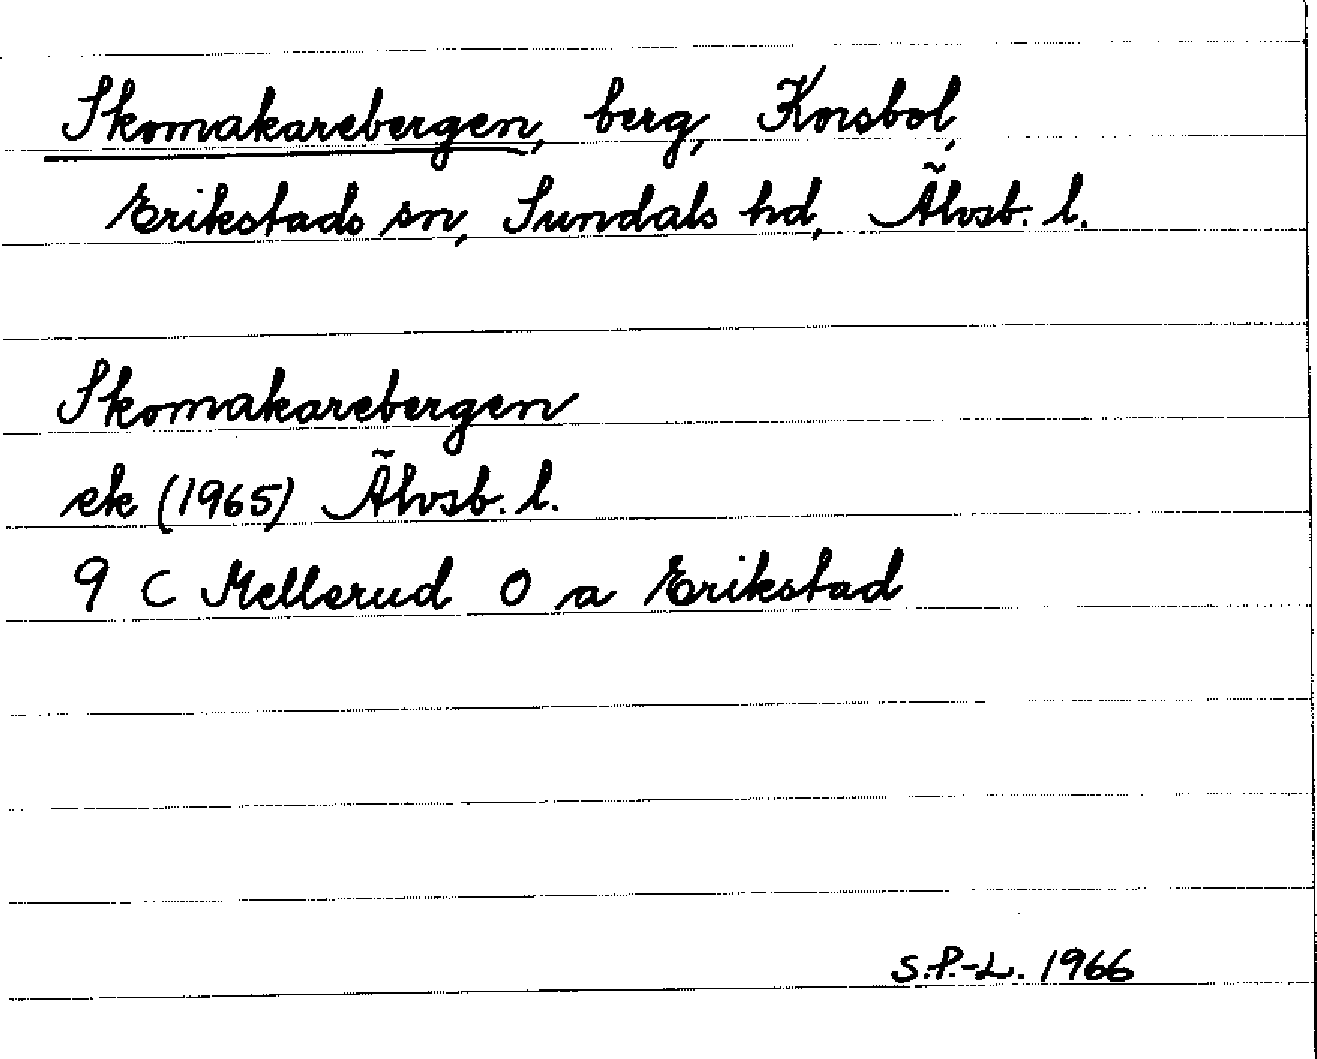 Skomakarebergen, berg, Korsbol,
Erikstads sn, Sundals hd, Älvsb. l.
Skomakarebergen
ek (1965) Älvsb. l.
9 C Mellerud O a Erikstad
S.P.-L. 1966